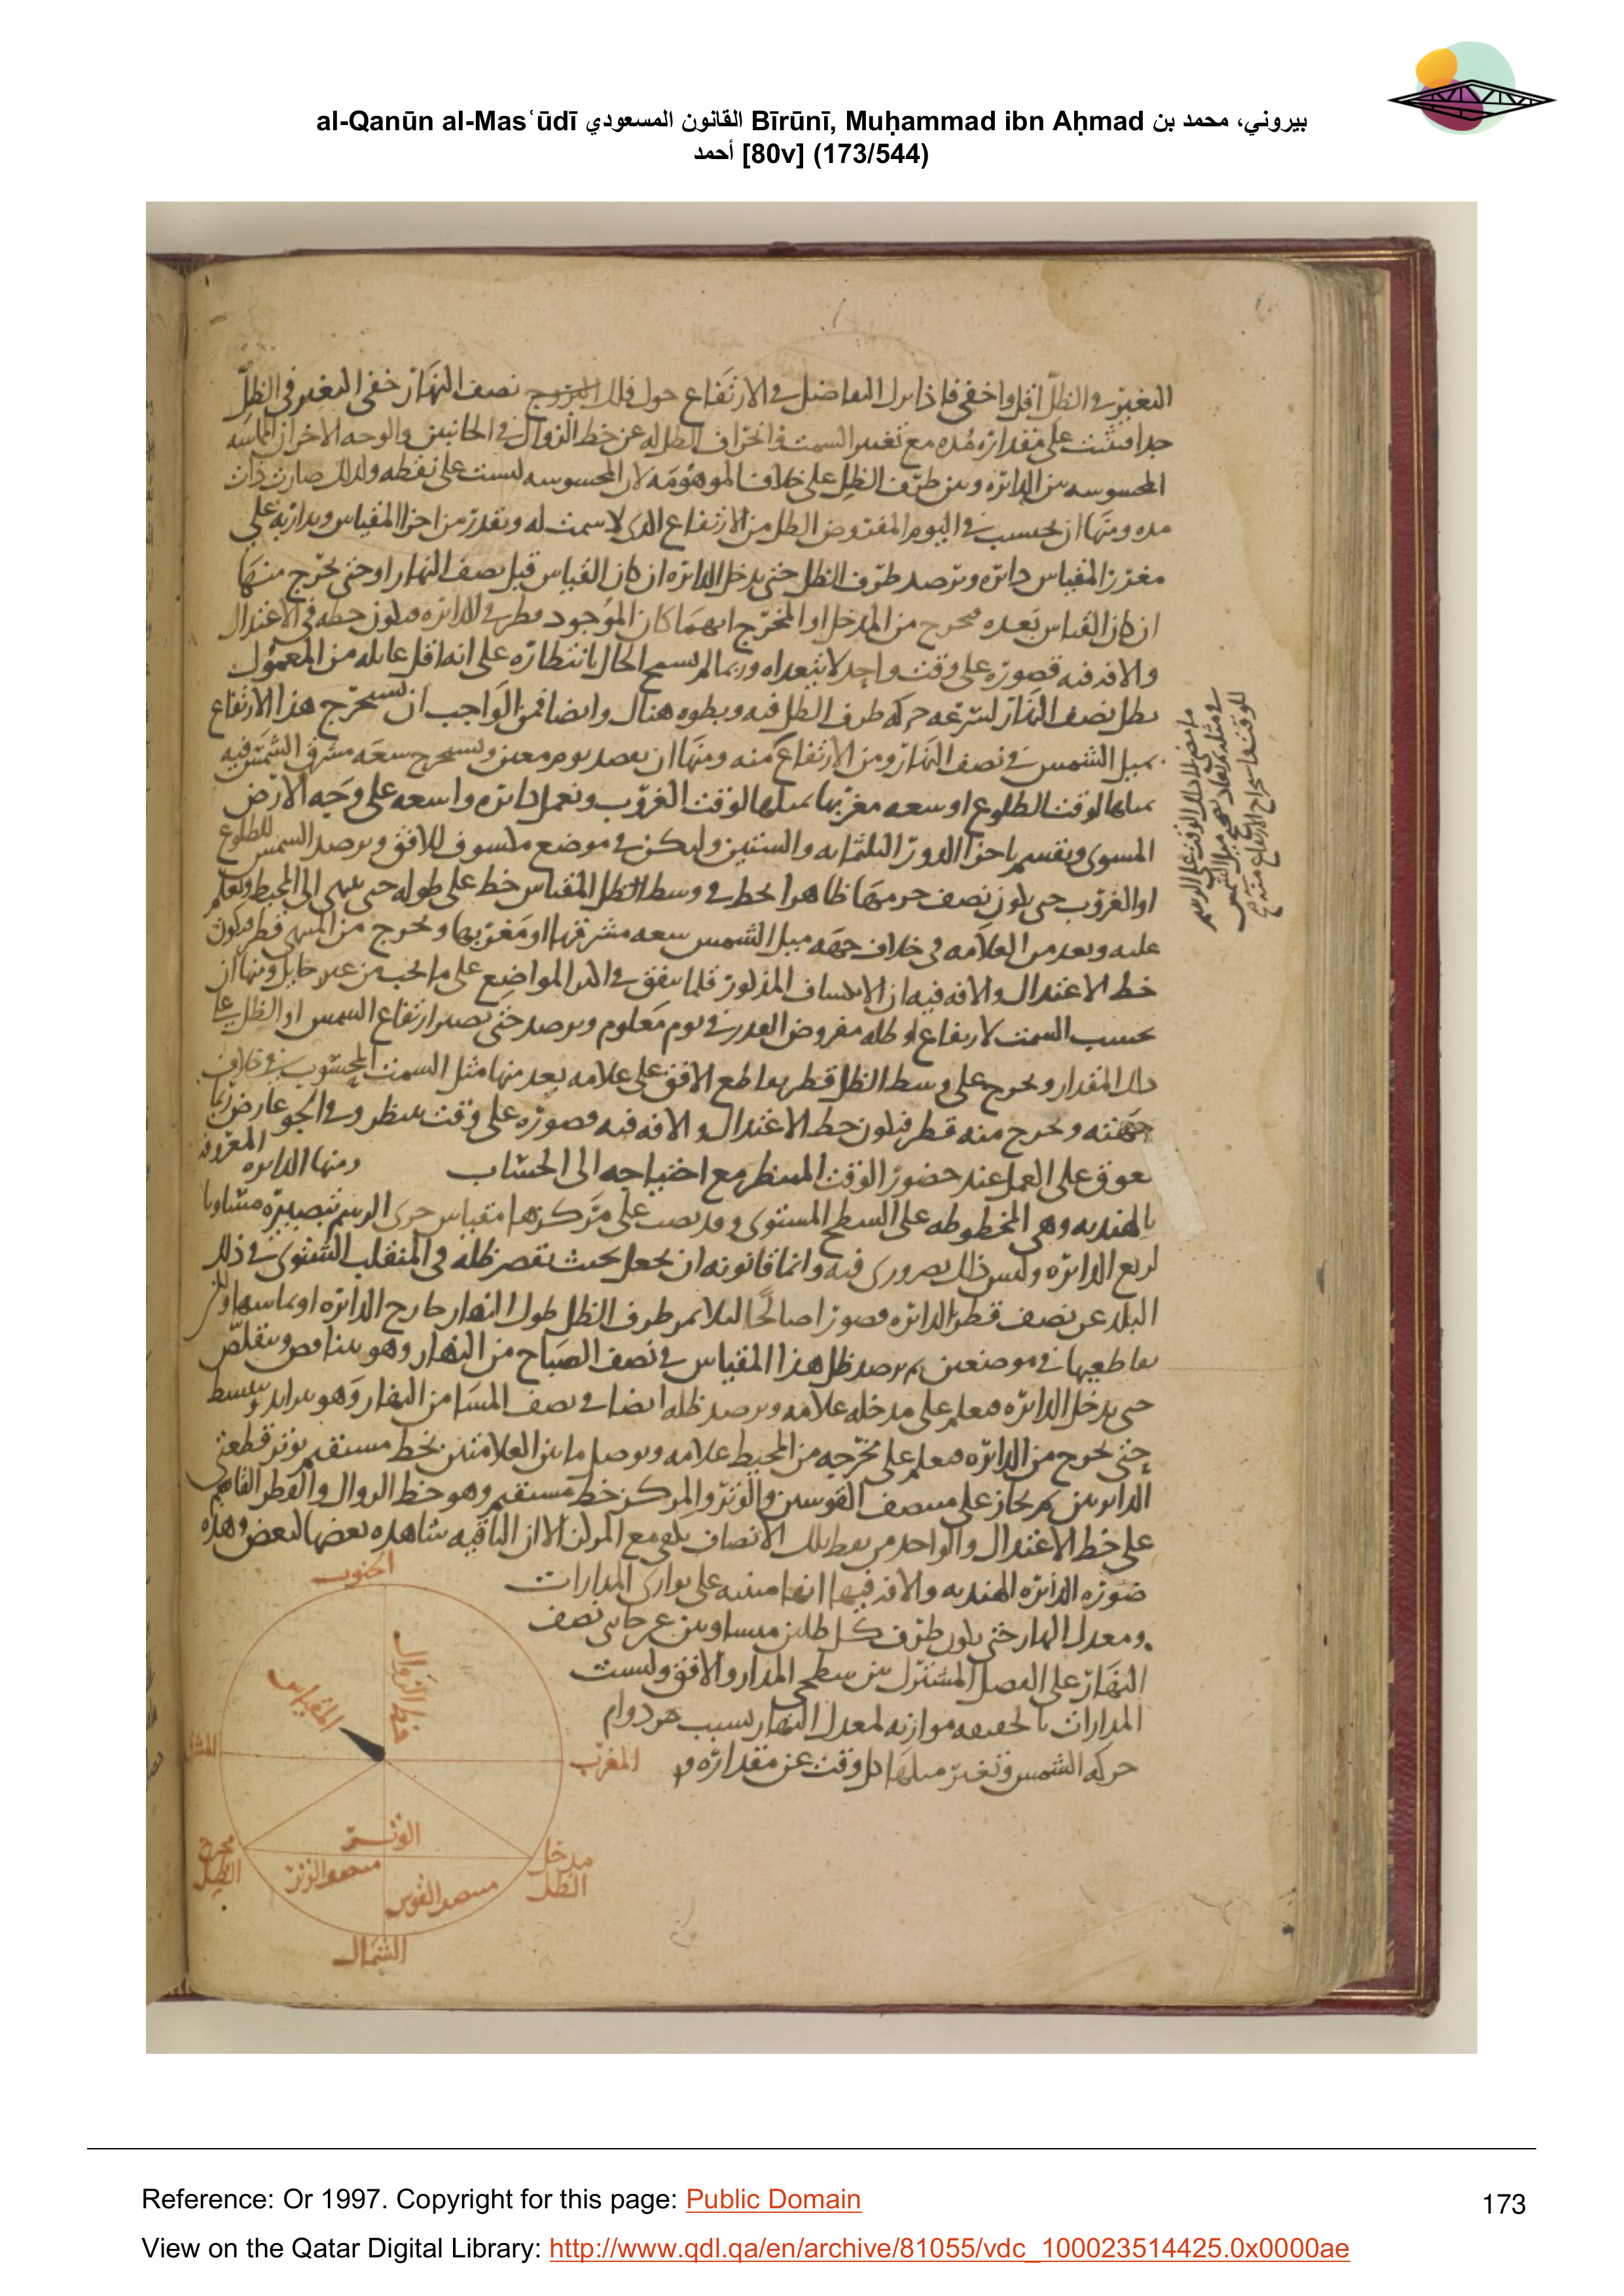 al-Qanūn al-Mas‘ūdī القانون المسعودي Bīrūnī, Muḥammad ibn Aḥmad بيروني، محمد بن
أحمد [80v] (173/544)
التغير في الظل اقل واخفى فاذا نزل التفاضل في الارتفاع حول فلك نصف النهار خفى التغير في الظل
جدا على مقداره مده مع تغير السمت وانحراف الظل له عن خط الزوال في الجانبين والوجه الاخر ان المماسه
المحسوسه بين الدائره وبين طرف الظل على خلاف الموهومه لان المحسوسه ليست على نقطه ولذلك صارت ذات
مده ومنها ان يحسب في اليوم المفروض الظل من الارتفاع الذى لا سمت له ويقدر من اجزا المقياس ويدار به على
مغرز المقياس دائره ويرصد طرف الظل حتى يدخل الدائره ان كان القياس قبل نصف النهار او حتى يخرج منها
ان كان القياس بعده فيخرج من المدخل او المخرج ايهما كان الموجود قطر في الدائره فيكون خط الاعتدال
والافه فيه قصوره على وقت واحد لا يتعداه وربما لم يسمح الحال بانتظاره على انه اقل غايله من المعمول
بظل نصف النهار لسرعه حركه طرف الظل فيه وبطوه هناك وايضا فمن الواجب ان يستخرج هذا الارتفاع
بميل الشمس في نصف النهار ومن الارتفاع منه ومنها ان يقصد يوم معين ويستخرج سعه مشرق الشمس فيه
بميلها لوقت الطلوع او سعه مغربها بميلها لوقت الغروب ونعمل دائره واسعه على وجه الارض
المسوى ونقسم باجزا الدور الثلثمايه والستين وليكن في موضع مكسوف للافق ويرصد الشمس للطلوع
او الغروب حتى يكون نصف جرمها ظاهرا يخط في وسط الظل المقياس خط على طوله حتى ينتهى الى المحيط ويعلم
عليه ويعد من العلامه فى خلاف جهه ميل الشمس سعه مشرقها او مغربها ويخرج من المنتهى قطر فيكون
خط الاعتدال والافه فيه ان الانكساف المذكور قلما يتفق في اكثر المواضع على ما يجب من غير حايل ومنها ان
يحسب السمت لارتفاع او ظله مفروض القدر في يوم معلوم ويرصد حتى يصير ارتفاع الشمس او الظل على
ذلك المقدار ويخرج على وسط الظل قطر يقاطع الافق على علامه يعد منها مثل السمت المحسوب في خلاف
جهته ويخرج منه قطر فيكون خط الاعتدال والافه فيه قصوره على وقت ينتظر وفي الجو عارض ربما
يعوق على العمل عند حضور الوقت المنتظر مع احتياجه الى الحساب ومنها الدائره المعروفه
بالهنديه وهى المخطوطه على السطح المستوى وقد نصب على مركزها مقياس جرى الرسم بتصييره مساويا
لربع الدائره وليس ذلك بضرورى فيه وانما قانونه ان يجعل بحيث يقصر ظله في المنقلب الشتوى في ذلك
البلد عن نصف قطر الدائره قصورا صالحا لئلا يمر طرف الظل طول النهار خارج الدائره او يماسها ولكن
يقاطعها في موضعين ثم يرصد ظل هذا المقياس في نصف الصباح من النهار وهو يتناقص ويتقلص
حتى يدخل الدائره فيعلم على مدخله علامه ويرصد ظله ايضا في نصف المسا من النهار وهو يتزايد وينبسط
حتى يخرج من الدائره فيعلم على مخرجه من المحيط علامه ويوصل ما بين العلامتين بخط مستقيم يوتر قطعتى
الدائره ثم يجاز على منتصف القوسين والوتر والمركز خط مستقيم وهو خط الزوال والقطر القائم
على خط الاعتدال والواحد من نقط تلك الانصاف يكفى مع المركز الا ان الباقيه شاهده بعضها لبعض وهذه
صوره الدائره الهنديه والافه فيها انها مبنيه على توازى المدارات
ومعدل النهار حتى يكون طرف كل ظلين متساويين عن جانبى نصف
النهار على الفصل المشترك بين سطحى المدار والافق وليست
المدارات بالحقيقه موازيه لمعدل النهار بسبب دوام
حركه الشمس وتغير ميلها كل وقت عن مقداره
الجنوب
خط الزوال
المقياس
المشرق
المغرب
الوتر
مخرج الظل
منتصف الوتر
منتصف القوس
مدخل الظل
الشمال
Reference: Or 1997. Copyright for this page: Public Domain
173
View on the Qatar Digital Library: http://www.qdl.qa/en/archive/81055/vdc_100023514425.0x0000ae